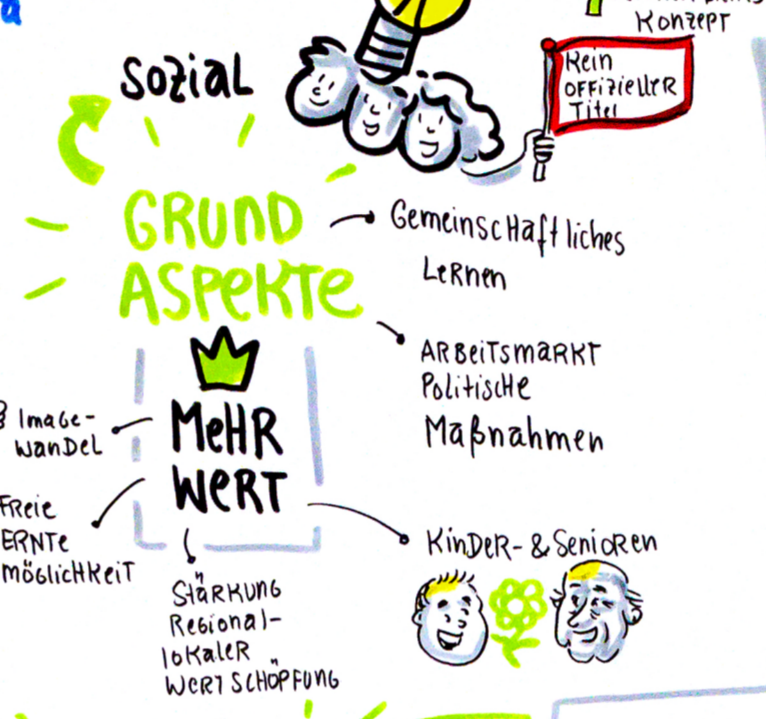 Konzept
Kein
offizieller
Titel
Sozial
Grund
Aspekte
Gemeinschaftliches
Lernen
Arbeitsmarkt
Politische
Maßnahmen
Mehr
Wert
Image-
wandel
Freie
Ernte
möglichkeit
Stärkung
Regional-
lokaler
Wertschöpfung
Kinder- & Senioren